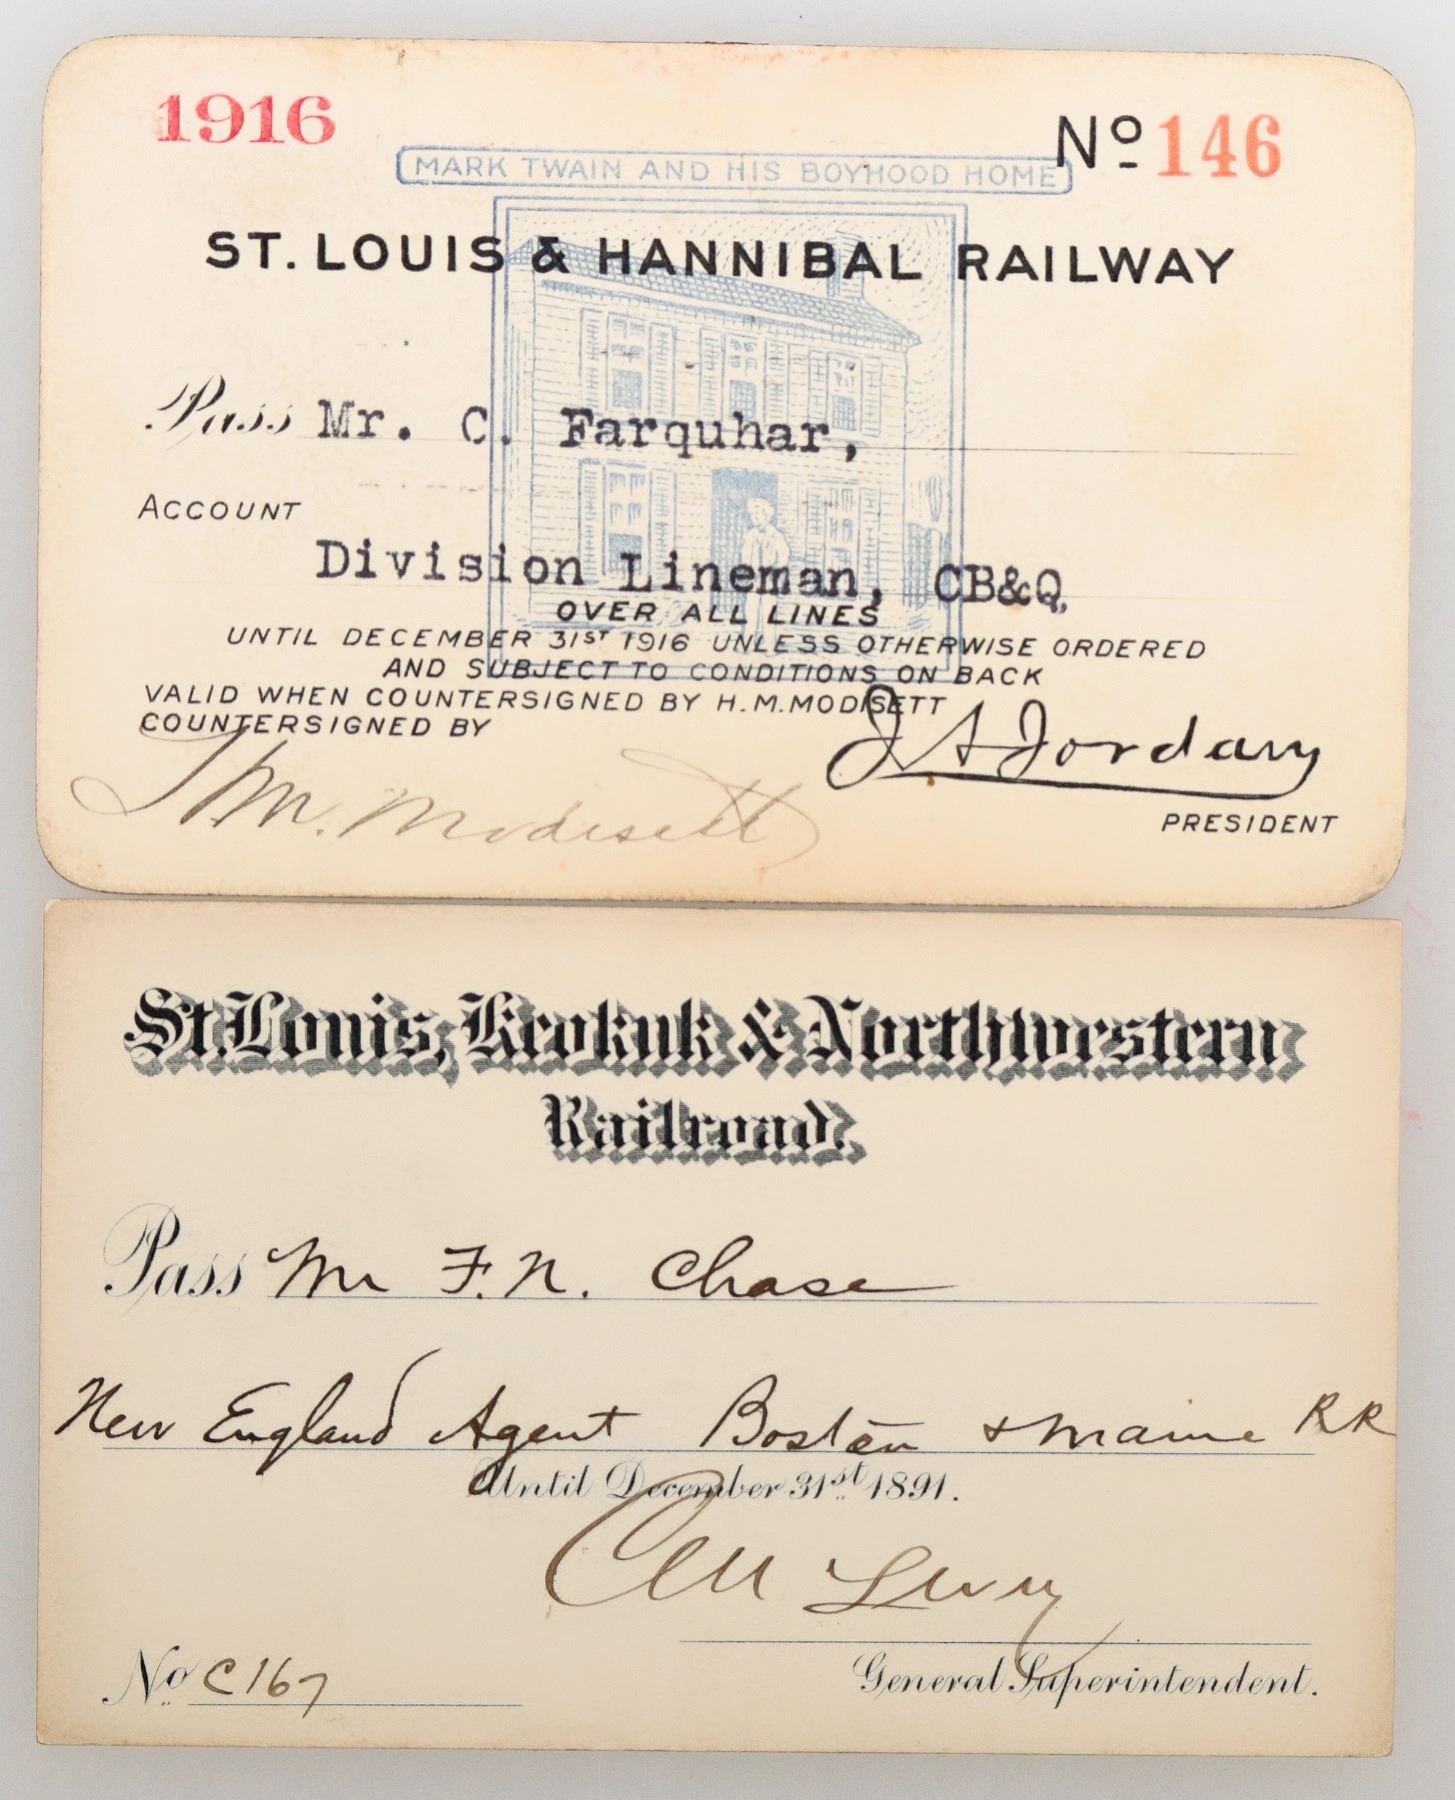 1916
No 146
MARK TWAIN AND HIS BOYHOOD HOME
ST. LOUIS & HANNIBAL RAILWAY
Pass Mr. C. Farquhar,
ACCOUNT
Division Lineman, CB&Q.
OVER ALL LINES
UNTIL DECEMBER 31ST 1916 UNLESS OTHERWISE ORDERED
AND SUBJECT TO CONDITIONS ON BACK
VALID WHEN COUNTERSIGNED BY H.M.MODISETT
COUNTERSIGNED BY
H.M. Modisett
J A Jordan
PRESIDENT
St. Louis, Keokuk & Northwestern
Railroad.
Pass Mr F.N. Chase
New England Agent Boston & Maine RR
Until December 31st 1891.
C M Levy
General Superintendent.
No C167